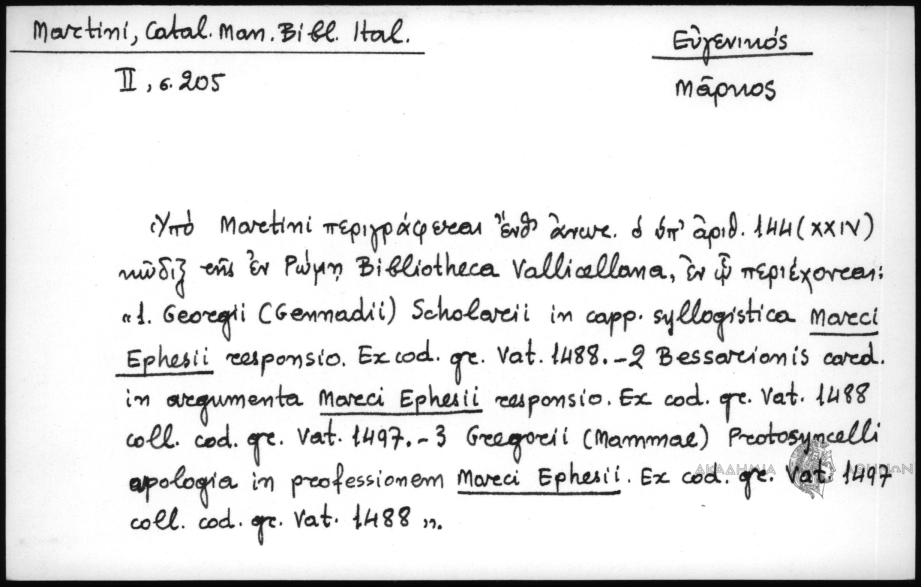 Martini, Catal. Man. Bibl. Ital.
II, σ. 205
Εὐγενικός
Μᾶρκος
Ὑπὸ Martini περιγράφεται ἔνθ' ἀνωτ. ὁ ὑπ' ἀριθ. 144 (XXIV)
κῶδιξ τῆς ἐν Ρώμῃ Bibliotheca Vallicellana, ἐν ᾧ περιέχονται:
«1. Georgii (Gennadii) Scholarii in capp. syllogistica Marci
Ephesii responsio. Ex cod. gr. Vat. 1488.-2 Bessarionis card.
in argumenta Marci Ephesii responsio. Ex cod. gr. Vat. 1488
coll. cod. gr. Vat. 1497.-3 Gregorii (Mammae) Protosyncelli
apologia in professionem Marci Ephesii. Ex cod. gr. Vat. 1497
coll. cod. gr. Vat. 1488».
ΑΚΑΔΗΜΙΑ ΑΘΗΝΩΝ